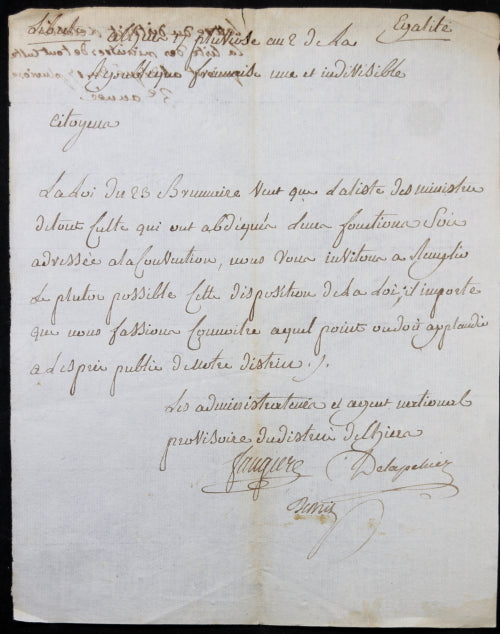 Liberté Egalité
pluviose an 2 de La
Republique francaise une et indivisible
Citoyens
La Loi du 23 Brumaire veut que La liste des ministres
de tout Culte qui ont abdiqués Leurs fonctions Soit
adressée a la Convention, nous vous invitons a Remplir
Le plutot possible Cette disposition de La Loi, il importe
que nous fassions Connoitre a quel point on doit applaudir
a L'esprit public de notre district ./.
Les administrateurs et agent national
provisoire du district de Thiers